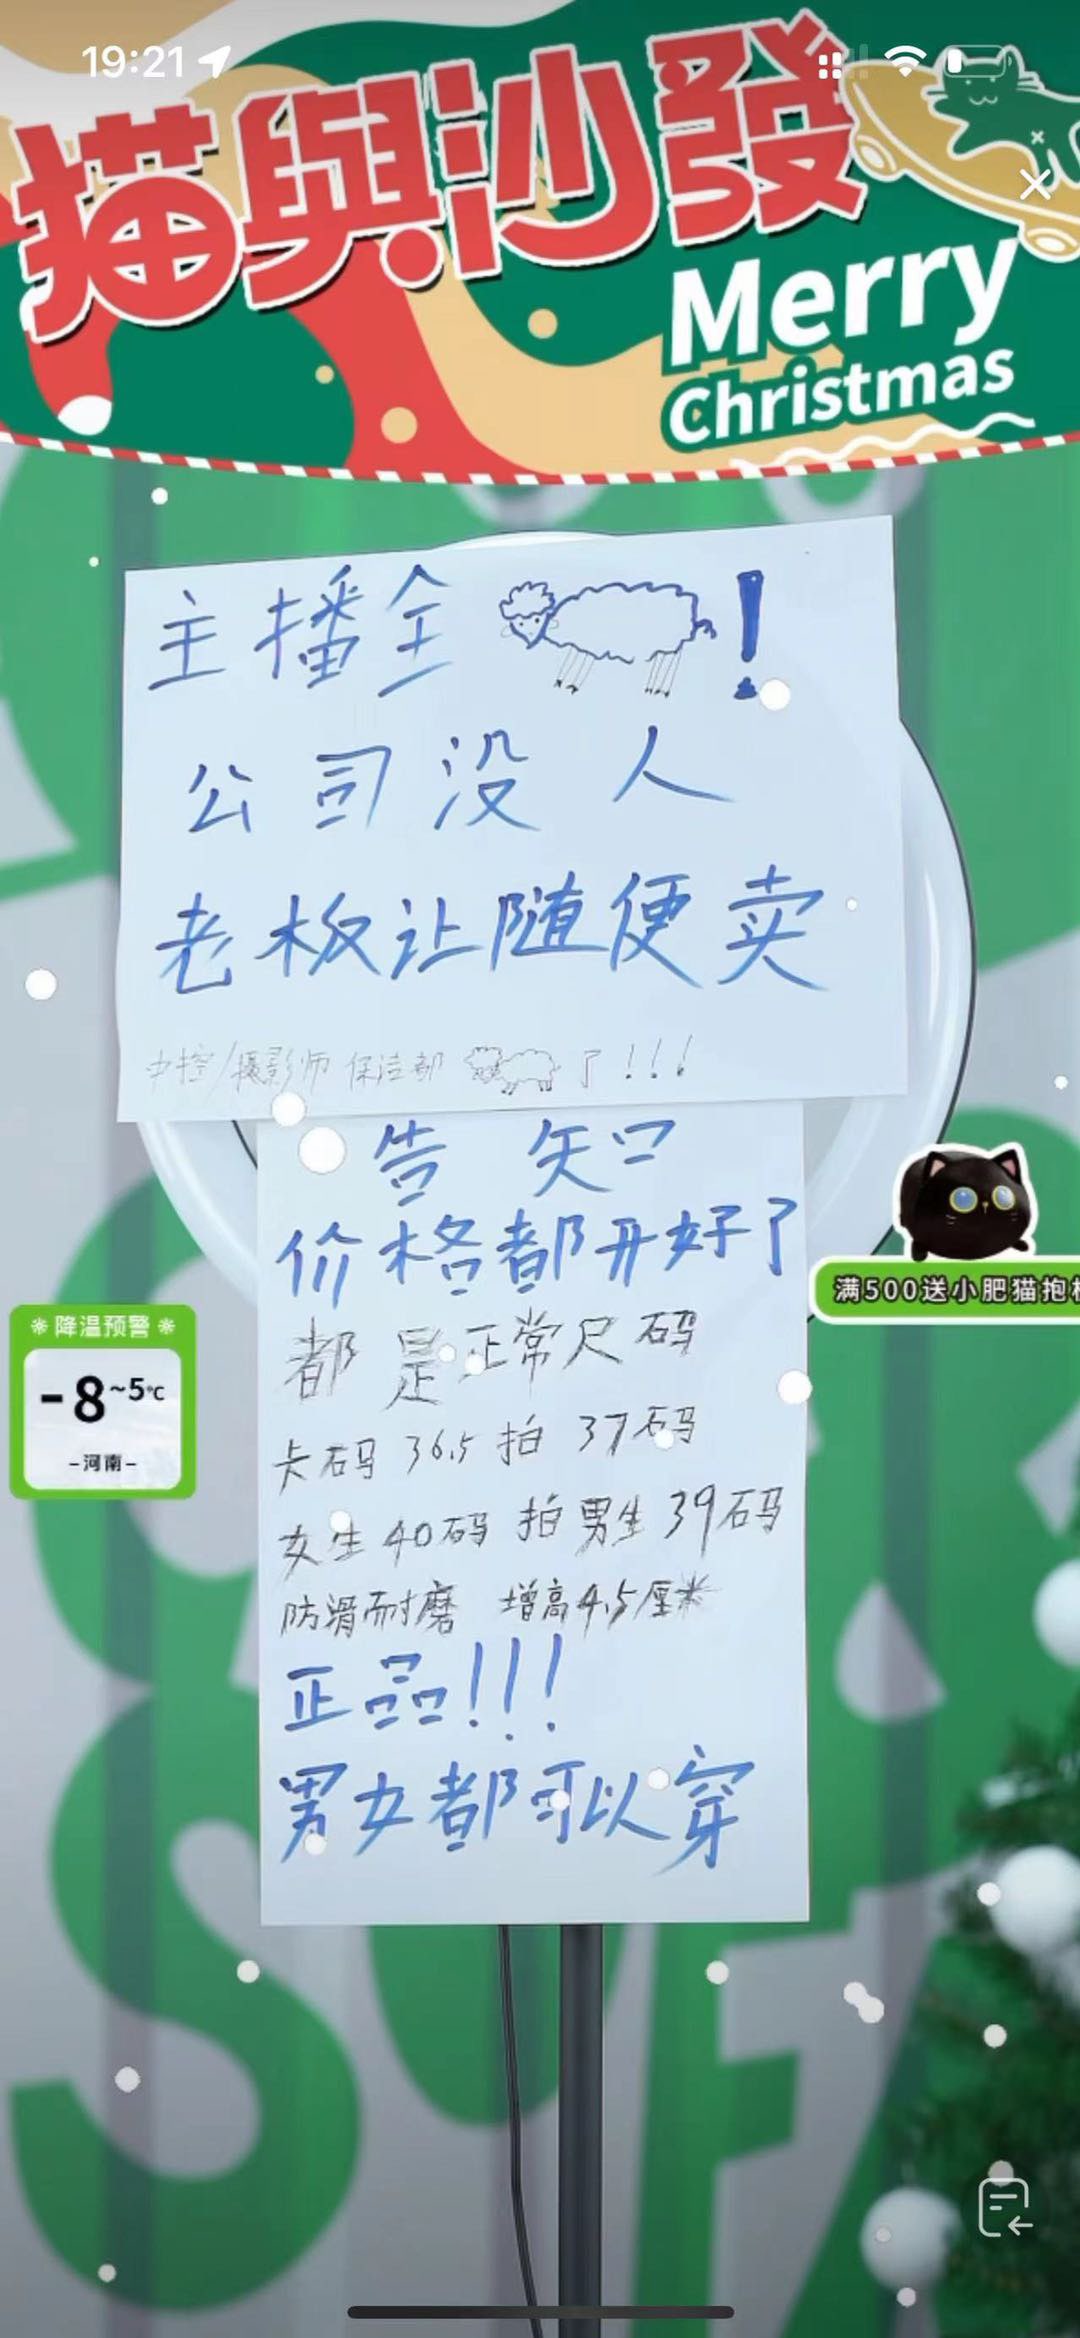 19:21
猫與沙發
Merry
Christmas
主播全!
公司没人
老板让随便卖
中控/摄影师 保洁部 了!!!
告知
价格都开好了
都是正常尺码
卡码 36.5 拍 37码
女生40码 拍男生39码
防滑耐磨 增高4.5厘米
正品!!!
男女都可以穿
满500送小肥猫抱
降温预警
-8~5℃
-河南-